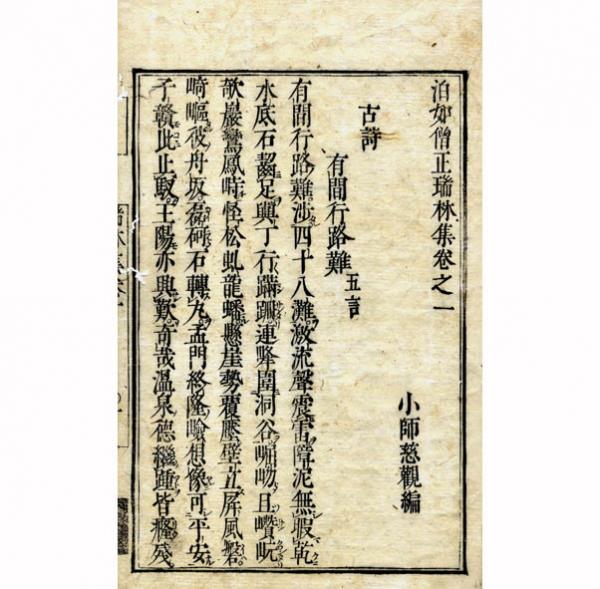 泊如僧正瑞林集卷之一
小師慈觀編
古詩
有間行路難 五言
有間行路難涉四十八灘激流聲震雷障泥無暇乾
水底石齧足輿丁行蹣跚連峰圍洞谷且巑岏
欹巖鸞鳳峙怪松虬龍蟠懸崖勢覆壓壁立屏風磐
崎嶇彼舟坂磊砢石轉丸孟門終隆嶮想像可平安
子贛此止馭王陽亦興歎奇哉溫泉德繼踵皆癃殘